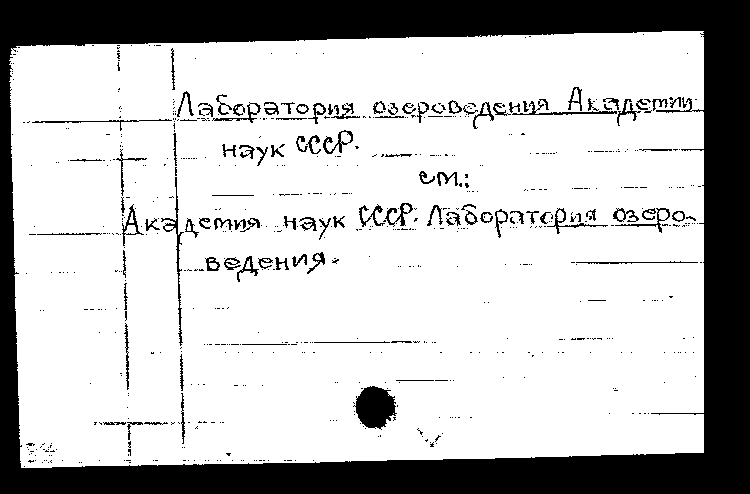 Лаборатория озероведения Академии
наук СССР.
см.:
Академия наук СССР. Лаборатория озеро-
ведения.